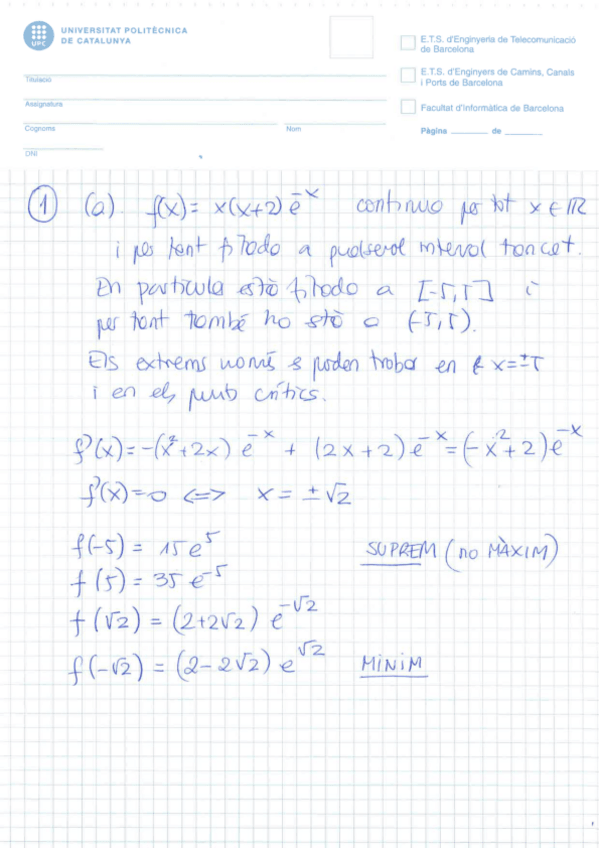 UNIVERSITAT POLITÈCNICA
DE CATALUNYA
UPC
E.T.S. d'Enginyeria de Telecomunicació
de Barcelona
E.T.S. d'Enginyers de Camins, Canals
i Ports de Barcelona
Facultat d'Informàtica de Barcelona
Titulació
Assignatura
Cognoms Nom
Pàgina de
DNI
1 (a). f(x) = x(x+2) e^{-x} continua per tot x ∈ ℝ
i per tant fitada a qualsevol interval tancat.
En particular està fitada a [-5,5] i
per tant també ho stà a (-5,5).
Els extrems només es poden trobar en x=±5
i en els punts crítics.
f'(x) = -(x²+2x) e^{-x} + (2x+2) e^{-x} = (-x²+2) e^{-x}
f'(x)=0 <=> x = ±√2
f(-5) = 15e^5 SUPREM (no MÀXIM)
f(5) = 35e^{-5}
f(√2) = (2+2√2) e^{-√2}
f(-√2) = (2-2√2) e^{√2} MINIM